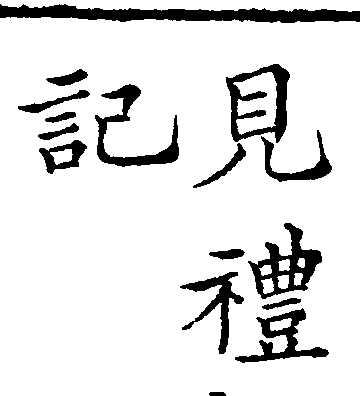 見禮
記